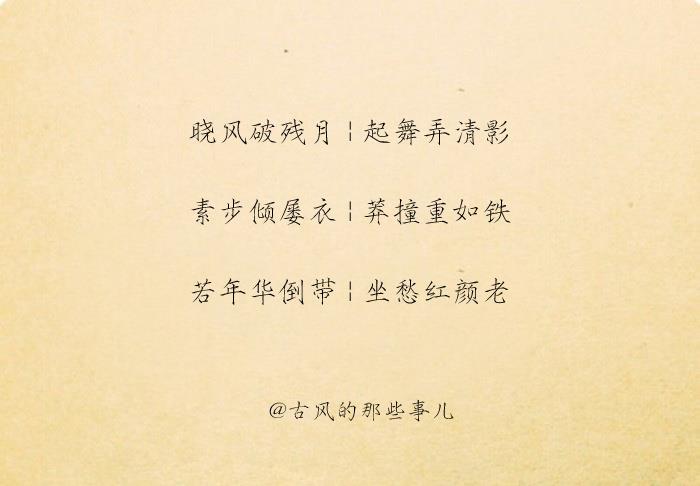 晓风破残月 | 起舞弄清影
素步倾屡衣 | 莽撞重如铁
若年华倒带 | 坐愁红颜老
@古风的那些事儿